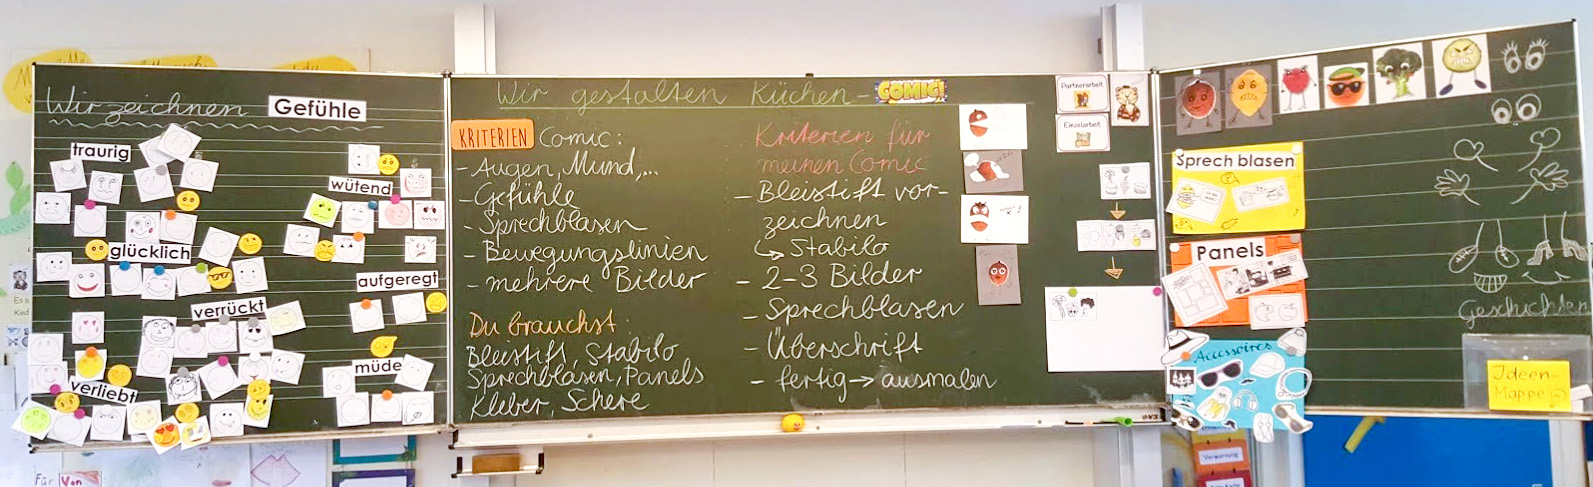 Wir zeichnen Gefühle
traurig
wütend
glücklich
aufgeregt
verrückt
müde
verliebt
Für Von
Wir gestalten Küchen-COMIC!
KRITERIEN Comic:
- Augen, Mund,...
- Gefühle
- Sprechblasen
- Bewegungslinien
- mehrere Bilder
Du brauchst:
Bleistift, Stabilo
Sprechblasen, Panels
Kleber, Schere
Kriterien für
meinen Comic
- Bleistift vor-
zeichnen
↳ Stabilo
- 2-3 Bilder
- Sprechblasen
- Überschrift
- fertig → ausmalen
Partnerarbeit
Einzelarbeit
Sprechblasen
Panels
Accessoires
Geschichten
Ideen-
Mappe
Verwarnung